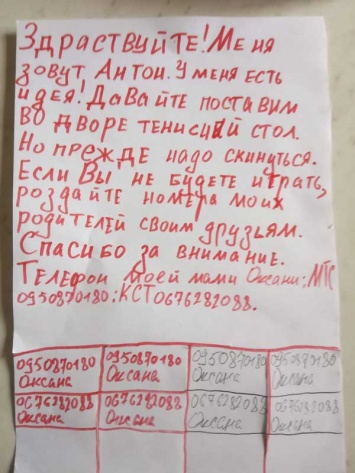 Здраствуйте! Меня
зовут Антон. У меня есть
идея! Давайте поставим
во дворе тенисный стол.
Но прежде надо скинуться.
Если Вы не будете играть,
роздайте номера моих
родителей своим друзьям.
Спасибо за внимание.
Телефон моей мами Оксани: МТС
0950870180; КСТ0676282088.
0950870180 0950870180 0950870180 0950870180
Оксана Оксана Оксана Оксана
0676282088 0676282088 0676282088 0676282088
Оксана Оксана Оксана Оксана